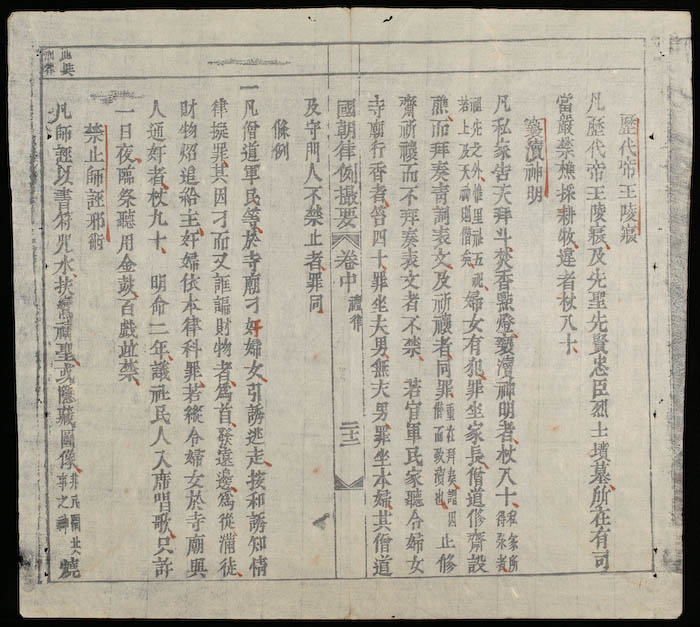 歷代帝王陵寢
凡歷代帝王陵寢及先聖先賢忠臣烈士墳墓所在有司
當嚴禁樵採耕牧違者杖八十
褻瀆神明
凡私家告天拜斗焚香點燈褻瀆神明者杖八十私家所得祭者
祖先之外惟里社五祀若上及天神則僭矣婦女有犯罪坐家長僧道修齋設
醮而拜奏青詞表文及祈禳者同罪重在拜奏 因僭而致瀆也止修
齋祈禳而不拜奏表文者不禁 若官軍民家聽令婦女
寺廟行香者笞四十罪坐夫男無夫男罪坐本婦其僧道
國朝律例撮要 卷中 禮律 二十二
及守門人不禁止者罪同
條例
一凡僧道軍民等於寺廟刁奸婦女引誘逃走按和誘知情
律擬罪其因刁而又誆騙財物者爲首發遠邊爲從滿徒
財物炤追給主奸婦依本律科罪若縱令婦女於寺廟與
人通奸者杖九十 明命二年議社民人入席唱歌只許
一日夜臨祭聽用金鼓百戲並禁
禁止師誣邪術
凡師誣以書符咒水扶鸞禱聖或隱藏圖像非民間 事之神燒